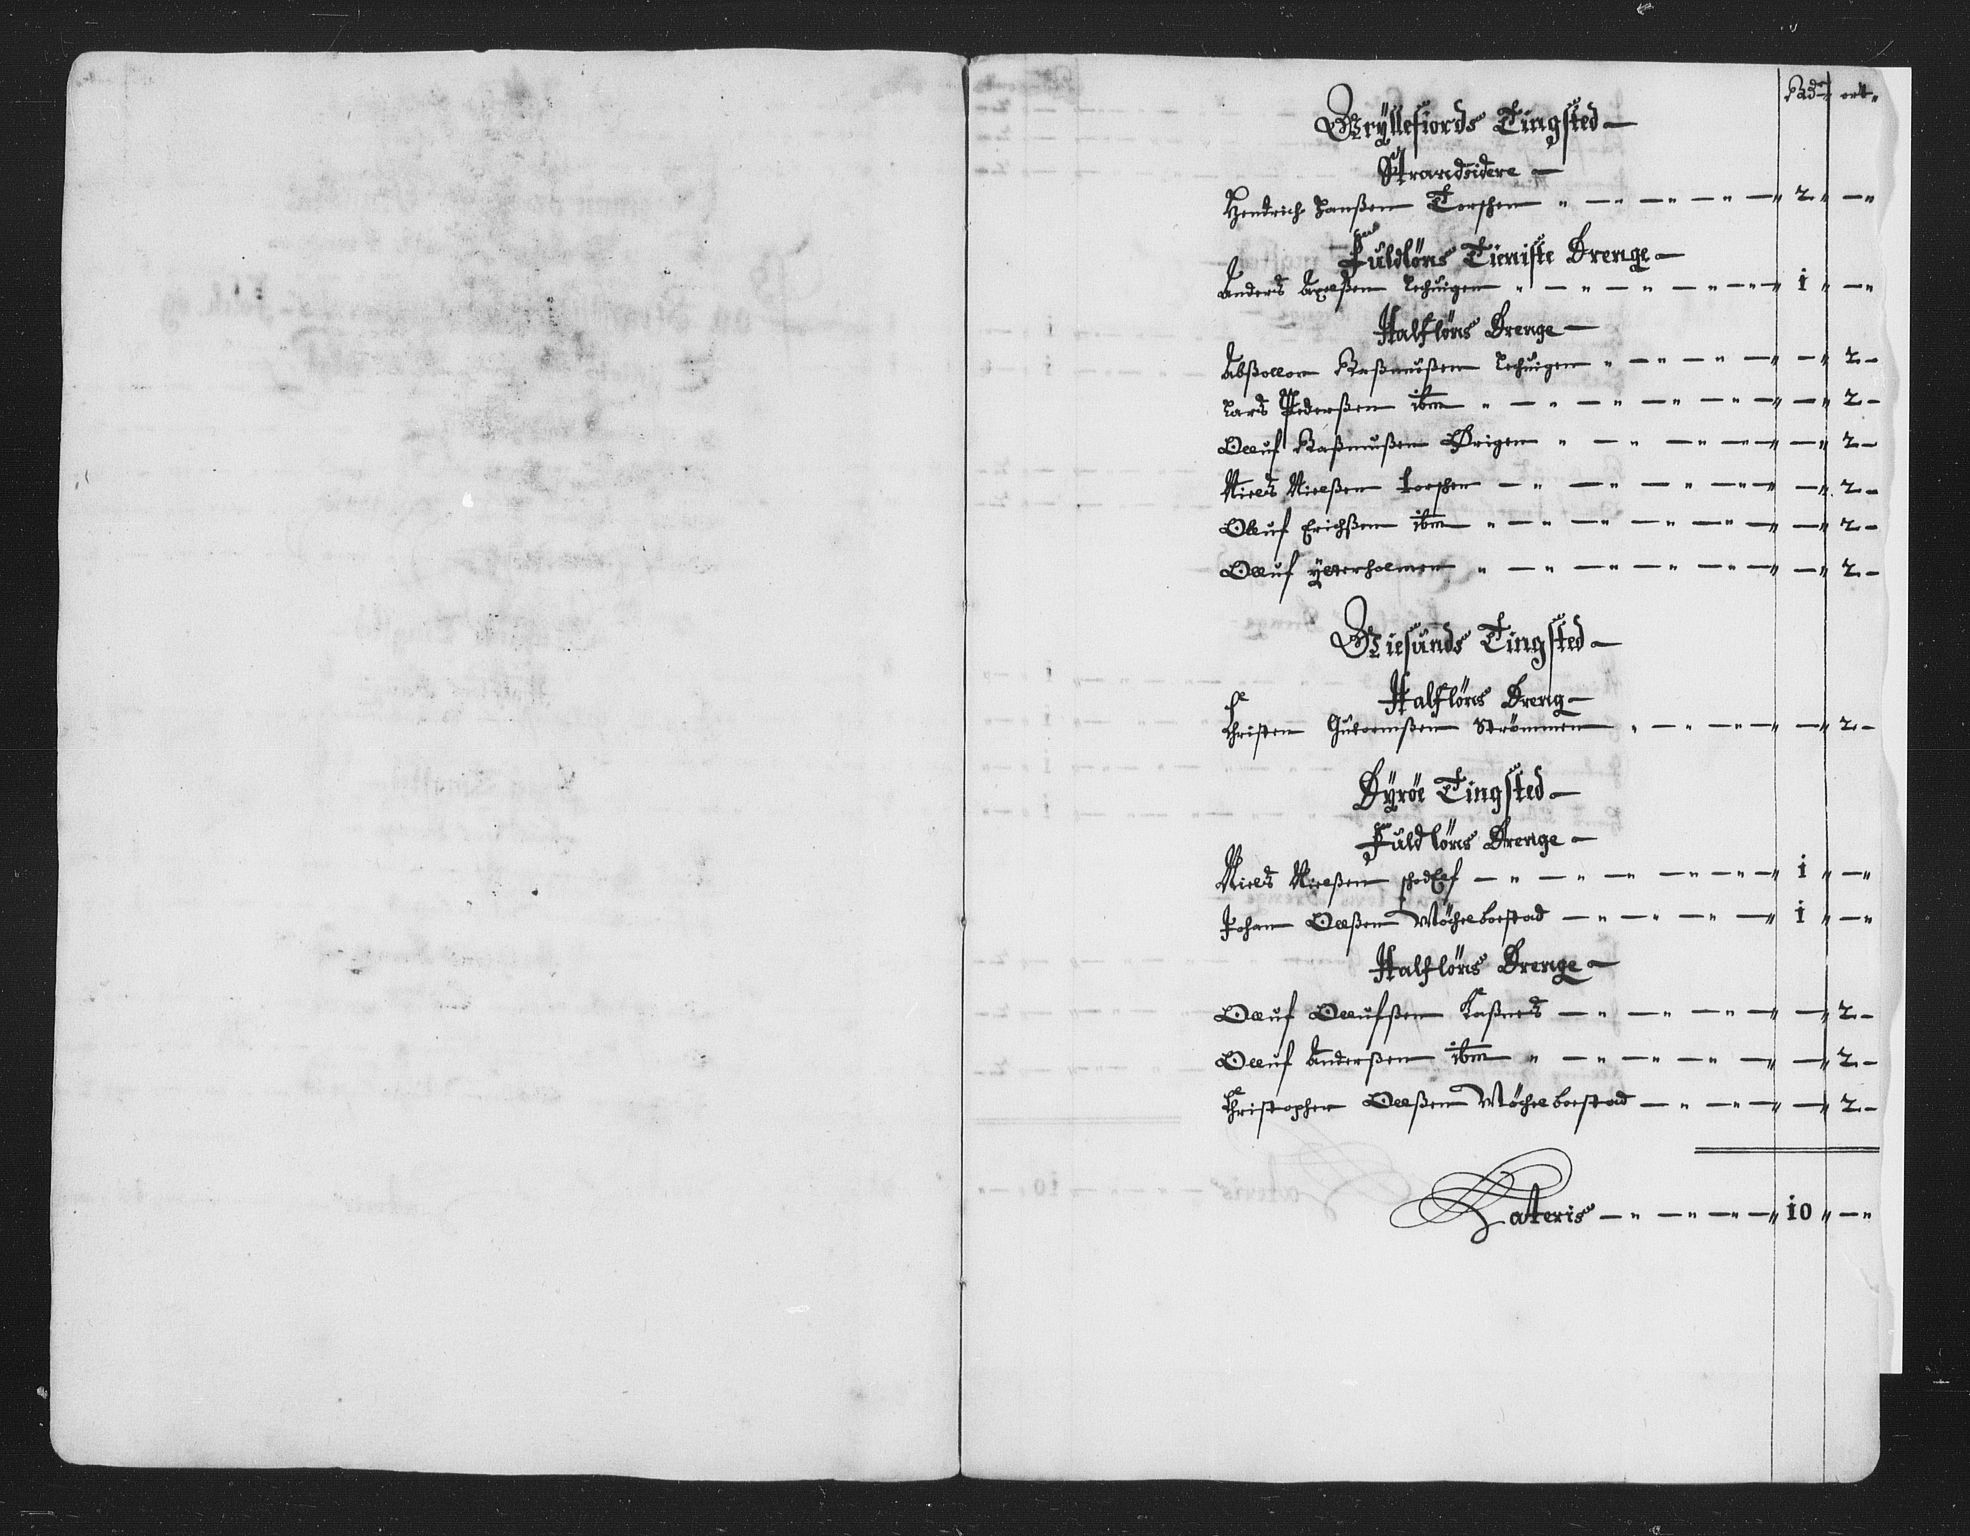 Rdr ort
Gryllefiords Tingsted
Strandsidere
Hendrich Hanßen Torschen - 2 -
Fuldlöns Tieniste Drenge
Anders Axelßen Lechuigen - 1 -
Halflöns Drenge
Abßollon Raßmußen Lechuigen - 2
Lars Pederßen ibm - 2
Olluf Raßmußen Ørigen - 2
Niels Nielßen torschen - 2
Olluf Erichßen ibm - 2
Olluf ytterholmen - 2
Giesunds Tingsted
Halflöns Dreng
Christen Gutormßen Strömmen - 2
Dyröe Tingsted
Fuldlöns Drenge
Niels Nielßen - 1 -
Johan Ollßen Möchelboestad - 1 -
Halflöns Drenge
Olluf Ollufßen Kaßnes - 2
Olluf Anderßen ibm - 2
Christopher Ollßen Möchelboestad - 2
Lateris - 10 -